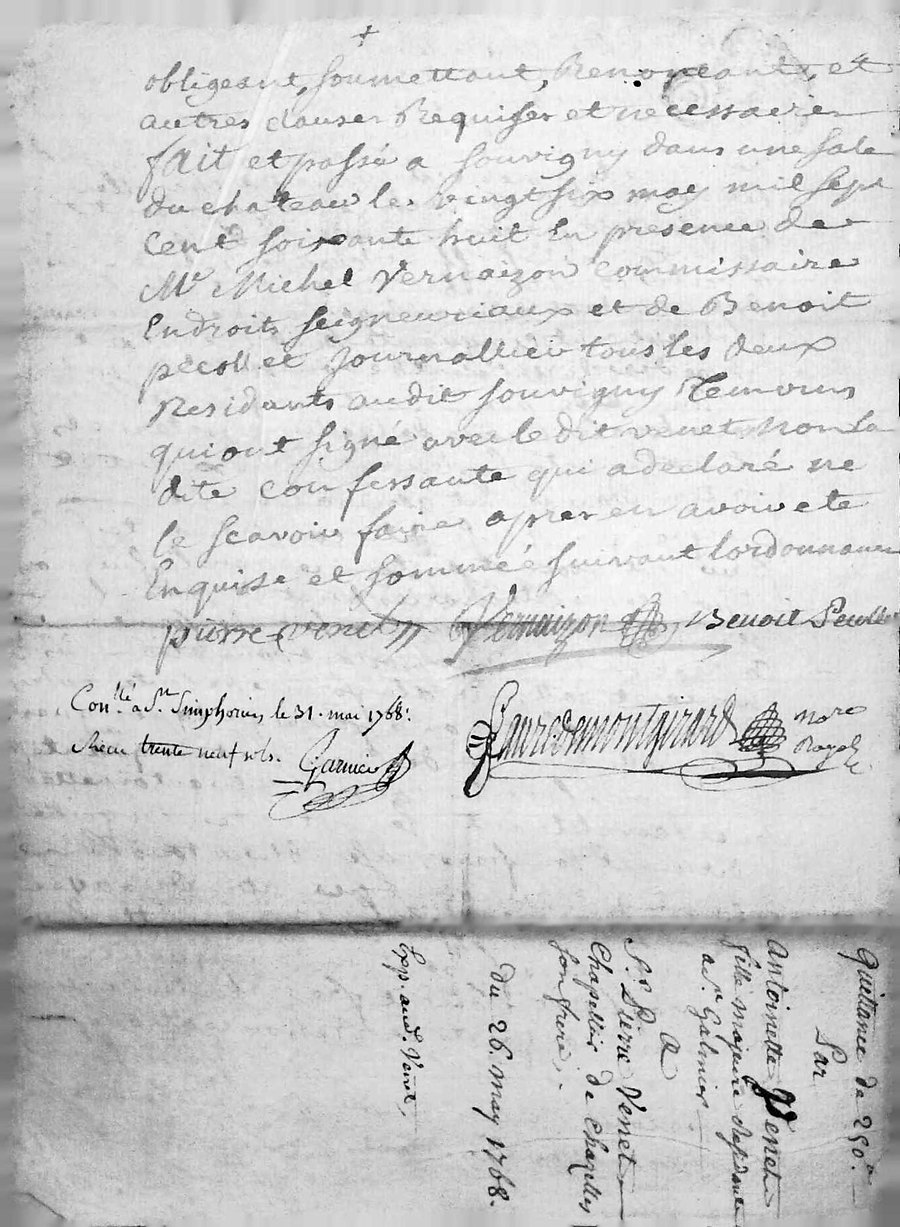 obligeant, soumettant, Renonçant, et
autres clauses Requises et necessaires
fait et passé a souvigny dans une sale
du chateau le vingt six may mil sept
cent soixante huit En presence de
Mr Michel Vernaizon commissaire
En droits seigneuriaux et de Benoit
pecollet Journallier tous les deux
Residants audit souvigny Temoins
qui ont signé avec le dit venet non la
dite confessante qui a declaré ne
le scavoir faire apres en avoir ete
Enquise et sommée suivant lordonnance
pierre venet Vernaizon Benoit
Con.llé a St. Simphorien le 31. mai 1768.
Reçu trente neuf sols. Garnier
notre
Royal
Quittance de 250.ll
Par
Antoinette Venet
fille majeure Residante
a St. Galmier.
A
Sr. Pierre Venet
Chapellier de Chazelles
son frere.
du 26. may 1768.
Exp. aud. Venet.